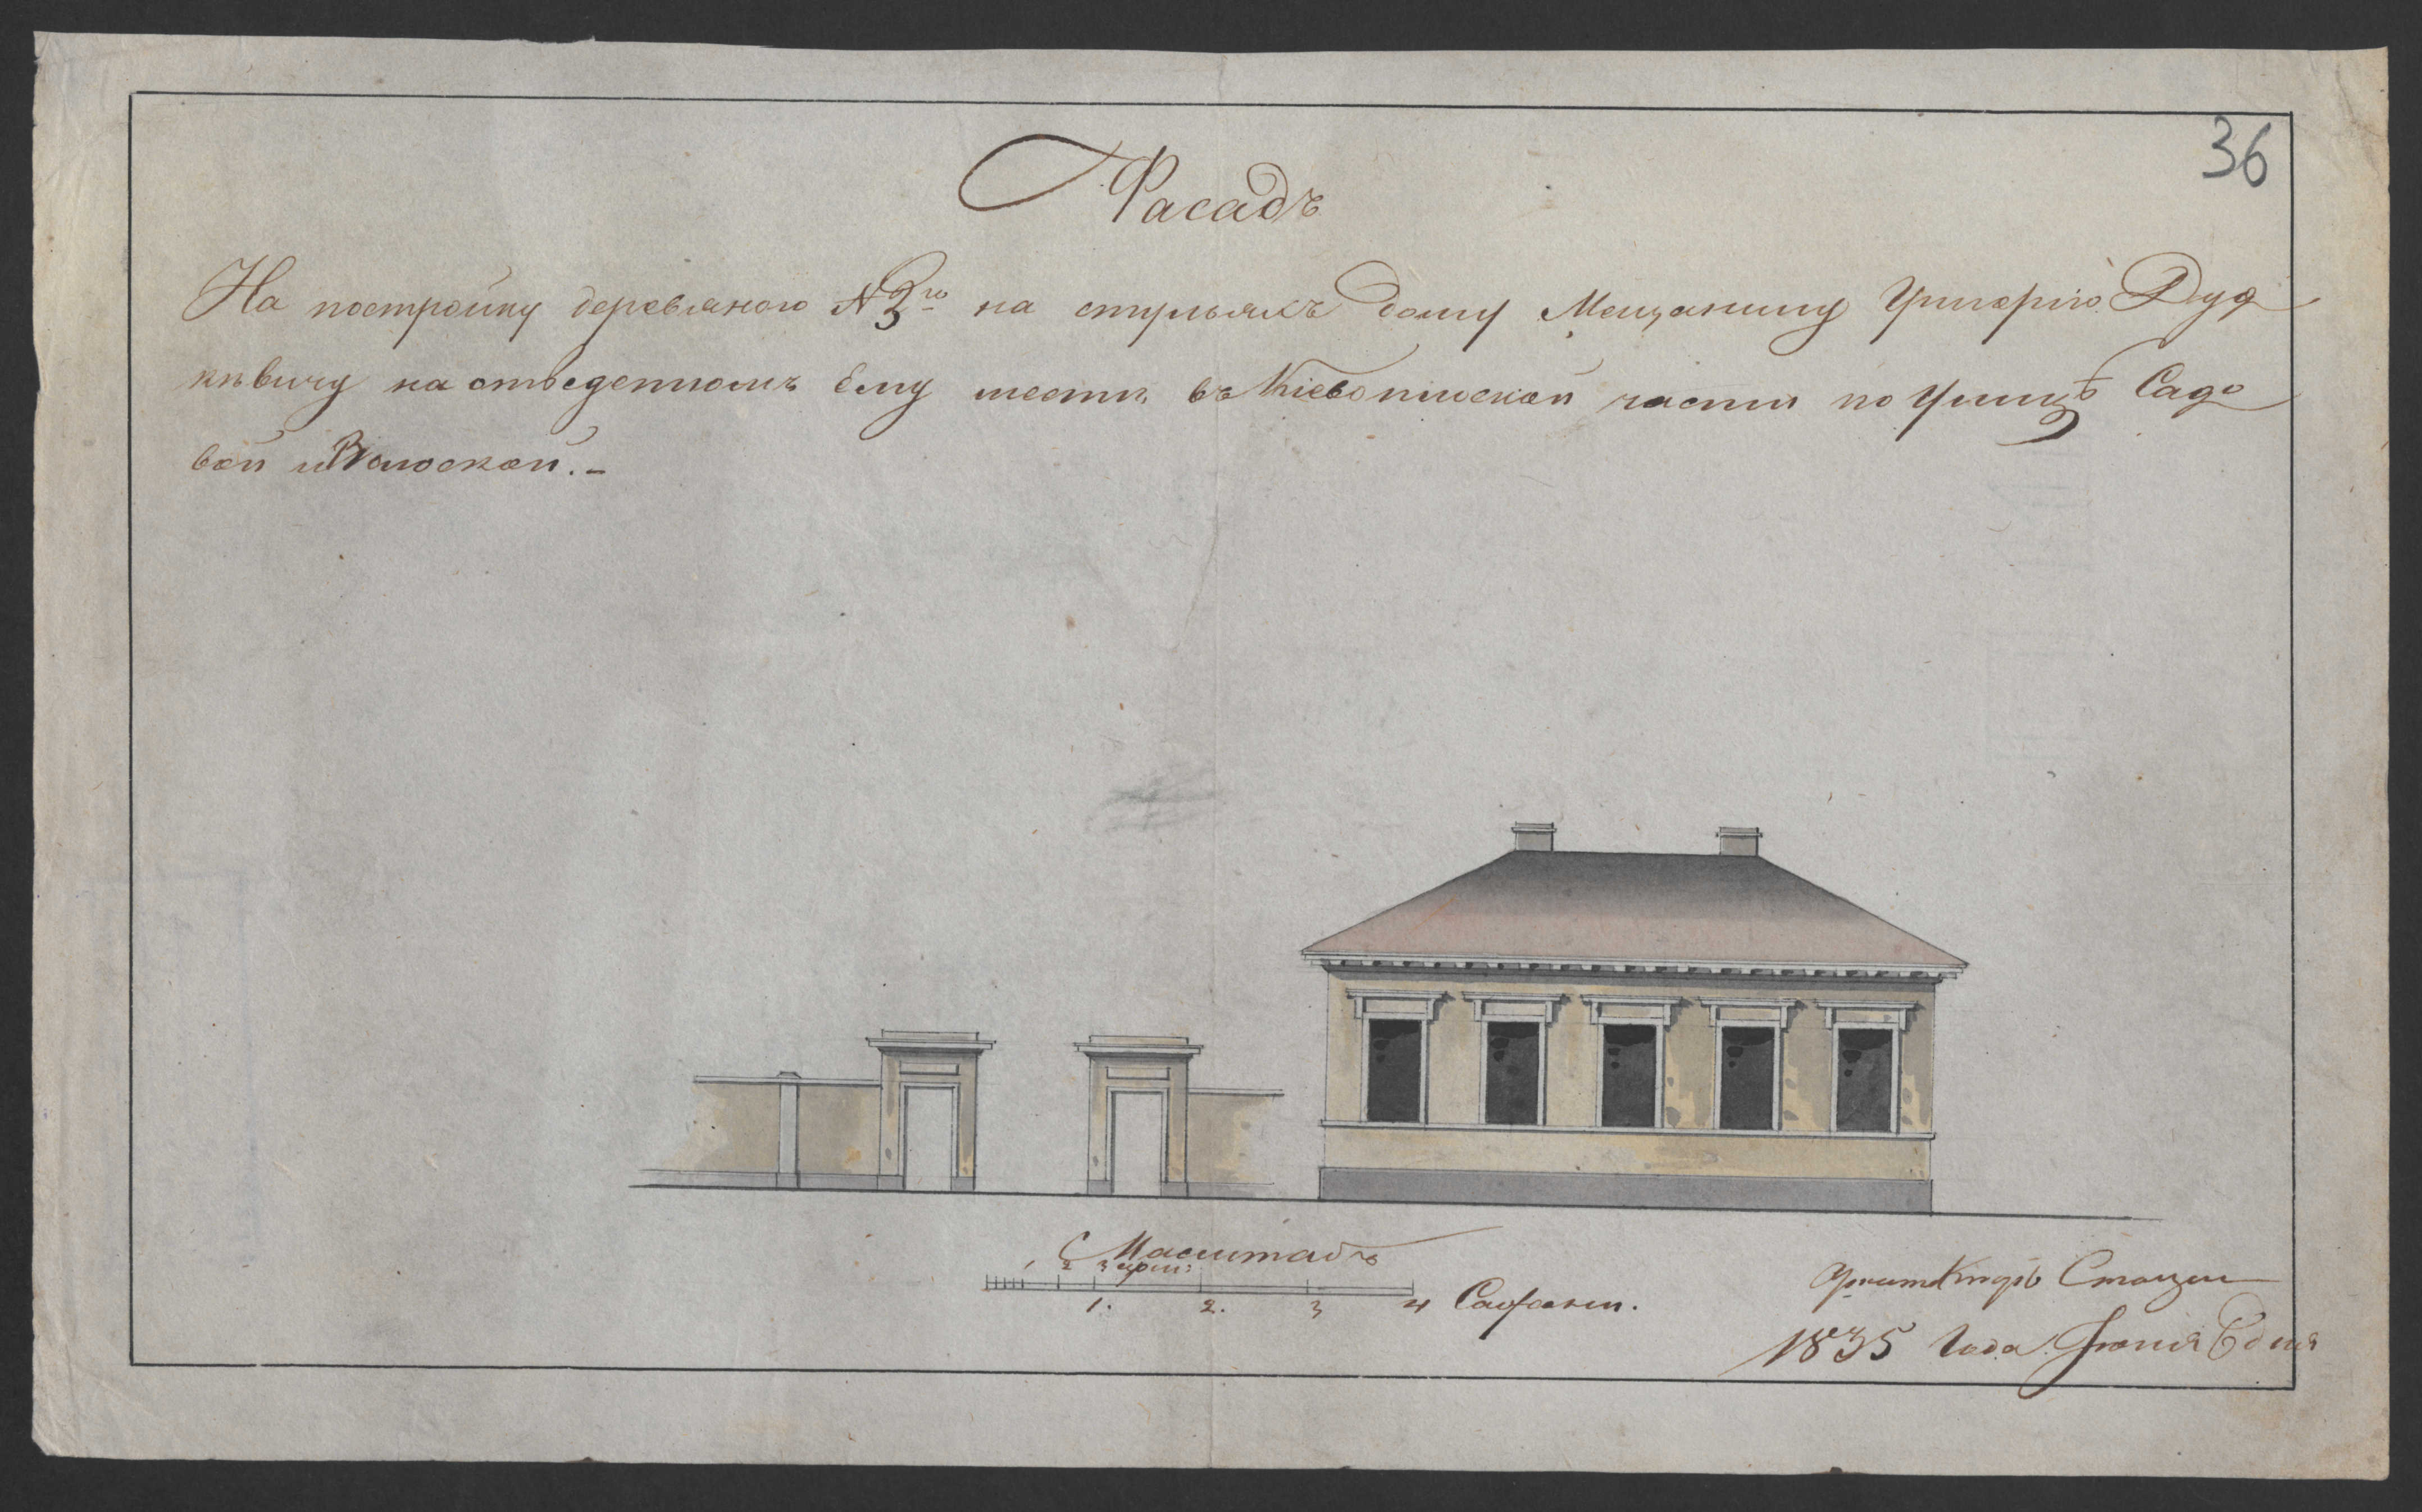 36
Фасадъ
На постройку деревяного №3го на стульяхъ дому Мещанину Григорію Дуд
кѣвичу на отведенномъ Ему месте въ Кіевоплоской части по Улицѣ Садо
вой и Плоской.-
Масштабъ
1 2 3 арш:
1. 2. 3 4 Сажени.
Архитекторъ
1835 Года Іюня 6 дня